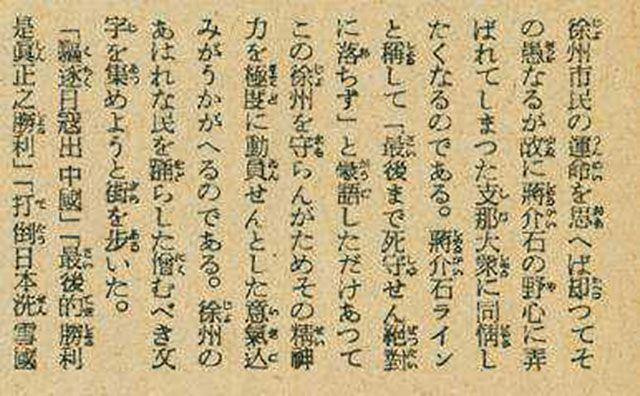 徐州市民の運命を思へば却つてそ
の愚なるが故に蔣介石の野心に弄
ばれてしまつた支那大衆に同情し
たくなるのである。蔣介石ライン
と稱して「最後まで死守せん絶對
に落ちず」と豪語しただけあつて
この徐州を守らんがためその精神
力を極度に動員せんとした意氣込
みがうかがへるのである。徐州の
あはれな民を踊らした僧むべき文
字を集めようと街を歩いた。
「驅逐日寇出中國」「最後的勝利
是眞正之勝利」「打倒日本洗雪國